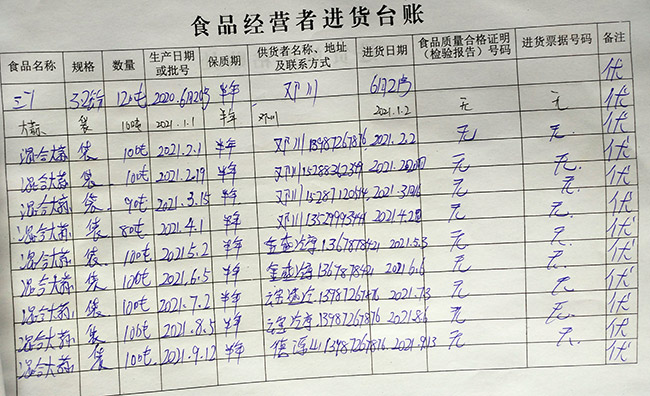 食品经营者进货台账
食品名称 规格 数量 生产日期或批号 保质期 供货者名称、地址及联系方式 进货日期 食品质量合格证明(检验报告)号码 进货票据号码 备注
120吨 2020.6月20号 半年 邓川 6月21号 无 无 优
大蒜 袋 100吨 2021.1.1 半年 邓川 2021.1.2 无 无 优
混合大蒜 袋 100吨 2021.2.1 半年 邓川13987267876 2021.2.2 无 无 优
混合大蒜 袋 100吨 2021.2.19 半年 邓川 无 无 优
混合大蒜 袋 90吨 2021.3.15 半年 邓川 无 无 优
混合大蒜 袋 80吨 2021.4.1 半年 邓川 无 无 优
混合大蒜 袋 100吨 2021.5.2 半年 2021.5.3 无 无 优
混合大蒜 袋 100吨 2021.6.5 半年 2021.6.6 无 无 优
混合大蒜 袋 100吨 2021.7.2 半年 13987267876 2021.7.3 无 无 优
混合大蒜 袋 100吨 2021.8.5 半年 13987267876 2021.8.6 无 无 优
混合大蒜 袋 100吨 2021.9.12 半年 13987267876 2021.9.13 无 无 优